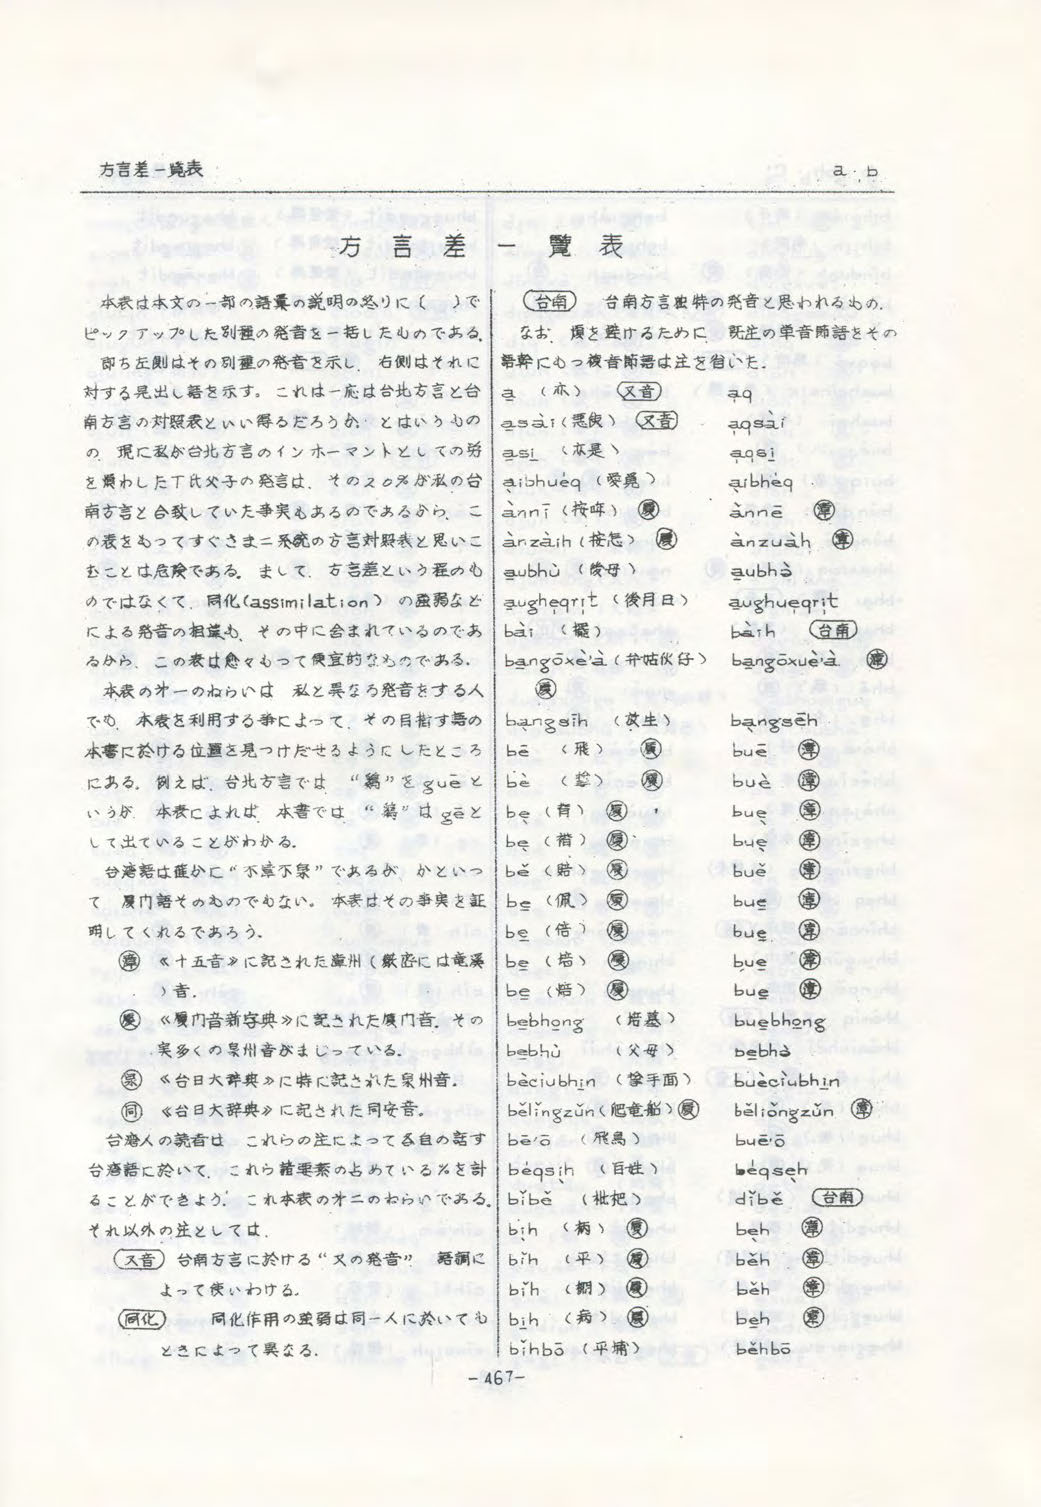 方言差一覧表
a . b
方言差一覽表
本表は本文の一部の語彙の説明の怒りに(　)で
ピックアップした別種の発音を一括したものである。
即ち左側はその別種の発音を示し、右側はそれに
対する見出し語を示す。これは一応は台北方言と台
南方言の対照表といい得るだろうか。とはいうもの
の、現に私が台北方言のインホーマントとしての労
を煩わした丁氏父子の発言は、その20%が私の台
南方言と合致していた事実もあるのであるから、こ
の表をもってすぐさま二系統の方言対照表と思いこ
むことは危険である。まして、方言差という程のも
のではなくて、同化(assimilation) の強弱など
による発音の相違も、その中に含まれているのであ
るから、この表は愈々もって便宜的なものである。
本表の才一のねらいは 私と異なる発音をする人
でも、本表を利用する事によって、その目指す語の
本書に於ける位置を見つけだせるようにしたところ
にある。例えば、台北方言では “鶏”を guē と
いうが、本表によれば、本書では “鶏”は gē と
して出ていることがわかる。
台湾語は確かに“不漳不泉”であるが、かといっ
て、厦门語そのものでもない。本表はその事実を証
明してくれるであろう。
㊟漳 ≪十五音≫に記された漳州(厳密には竜溪
)音.
厦 ≪厦门音新字典≫に記された厦门音。その
実多くの泉州音がまじっている。
泉 ≪台日大辞典≫に特に記された泉州音.
同 ≪台日大辞典≫に記された同安音.
台湾人の読者は、これらの注によって各自の話す
台湾語に於いて、これら諸要素の占めている%を計
ることができよう。これ本表の才二のねらいである。
それ以外の注としては、
又音 台南方言に於ける“又の発音” 語調に
よって使いわける。
同化 同化作用の強弱は同一人に於いても
ときによって異なる.
台南 台南方言独特の発音と思われるもの.
なお、煩を避けるために、既注の単音節語をその
語幹にもつ複音節語は注を省いた.
a̱ (亦) 又音 a̱q
a̱sài (悪使) 又音 a̱qsài
a̱si̱ (亦是) a̱qsi̱
a̱ibhuéq (愛覓) a̱ibhéq
ànnī (按哖) 厦 ànnē 漳
ànzàih (按怎) 厦 ànzuàh 漳
a̱ubhù (後母) a̱ubhə̀
a̱ughe̱qri̱t (後月日) a̱ughue̱qri̱t
bài (擺) bàih 台南
ba̱ngōxè'à (弁姑伙仔) ba̱ngōxuè'à 漳
厦
ba̱ngsīh (放生) ba̱ngsēh
bē (飛) 厦 buē 漳
bè (挀) 厦 buè 漳
be̱ (背) 厦 bue̱ 漳
be̱ (褙) 厦 bue̱ 漳
bě (賠) 厦 buě 漳
be̱ (佩) 厦 bue̱ 漳
be̱ (倍) 厦 bue̱ 漳
be̱ (培) 厦 bue̱ 漳
be̱ (焙) 厦 bue̱ 漳
be̱bho̱ng (培墓) bue̱bho̱ng
be̱bhù (父母) be̱bhə̀
bèciubhi̱n (掌手面) buèciubhi̱n
bělǐngzǔn (爬竜船) 厦 běliǒngzǔn 漳
bē'ō (飛鳥) buē'ō
béqsi̱h (百姓) béqse̱h
bǐbě (枇杷) dǐbě 台南
bi̱h (柄) 厦 be̱h 漳
bǐh (平) 厦 běh 漳
bǐh (棚) 厦 běh 漳
bi̱h (病) 厦 be̱h 漳
bǐhbō (平埔) běhbō
-467-